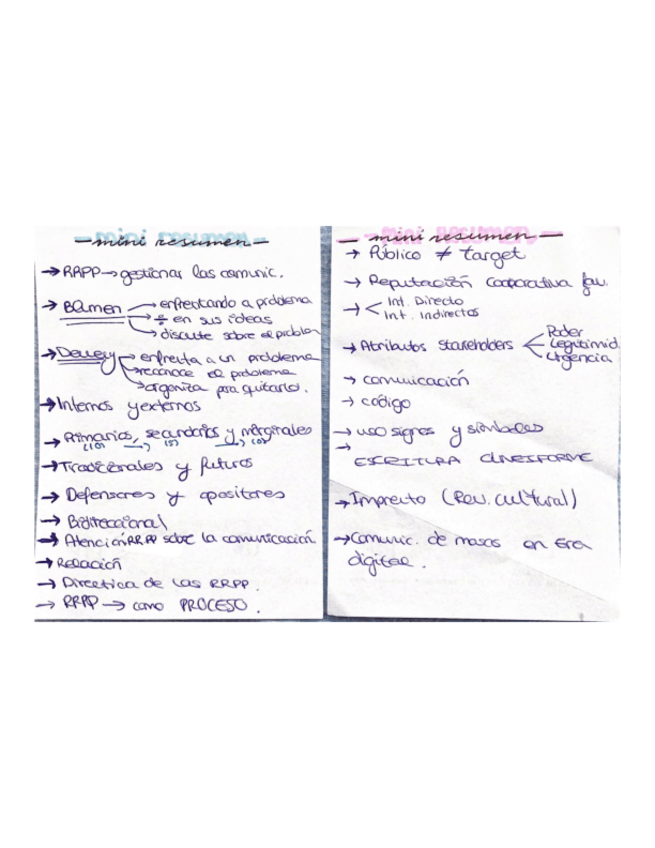 -mini resumen-
→ RRPP → gestionar las comunic.
→ Blumen → enfrentando a problema
→ ÷ en sus ideas
→ discute sobre el problem
→ Dewey → enfrenta a un problema
→ reconoce el problema
→ organiza para quitarlo.
→ Internos y externos
→ Primarios, secundarios y marginales
→ Tradicionales y futuros
→ Defensores y opositores
→ Bidireccional
→ Atención RRPP sobre la comunicación.
→ Relación
→ Directiva de las RRPP.
→ RRPP → como PROCESO.
- mini resumen -
→ Público ≠ target
→ Reputación Cooporativa fav.
→ < Int. Directo
Int. Indirectos
→ Atributos Stakeholders < Poder
Legitimid.
Urgencia
→ comunicación
→ código
→ uso signos y símbolos
→ ESCRITURA CUNEIFORME
→ Imprenta (Rev. cultural)
→ Comunic. de masas en Era
digital.